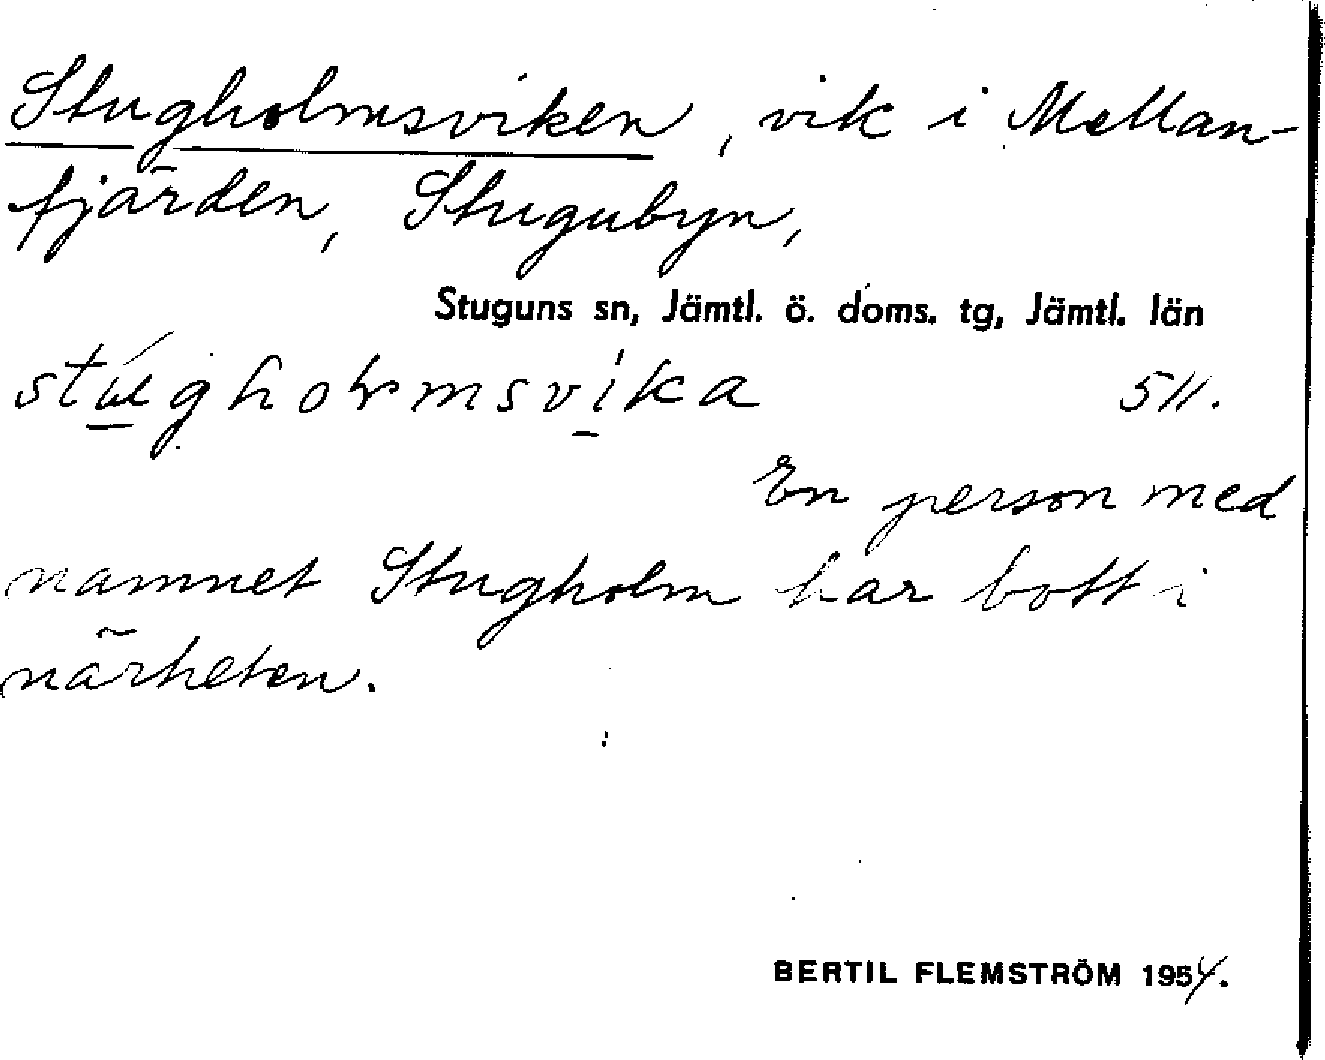 Stugholmsviken, vik i Mellan-
fjärden, Stugubyn,
Stuguns sn, Jämtl. ö. doms. tg, Jämtl. län
511.
En person med
namnet Stugholm har bott i
närheten.
BERTIL FLEMSTRÖM 1954.